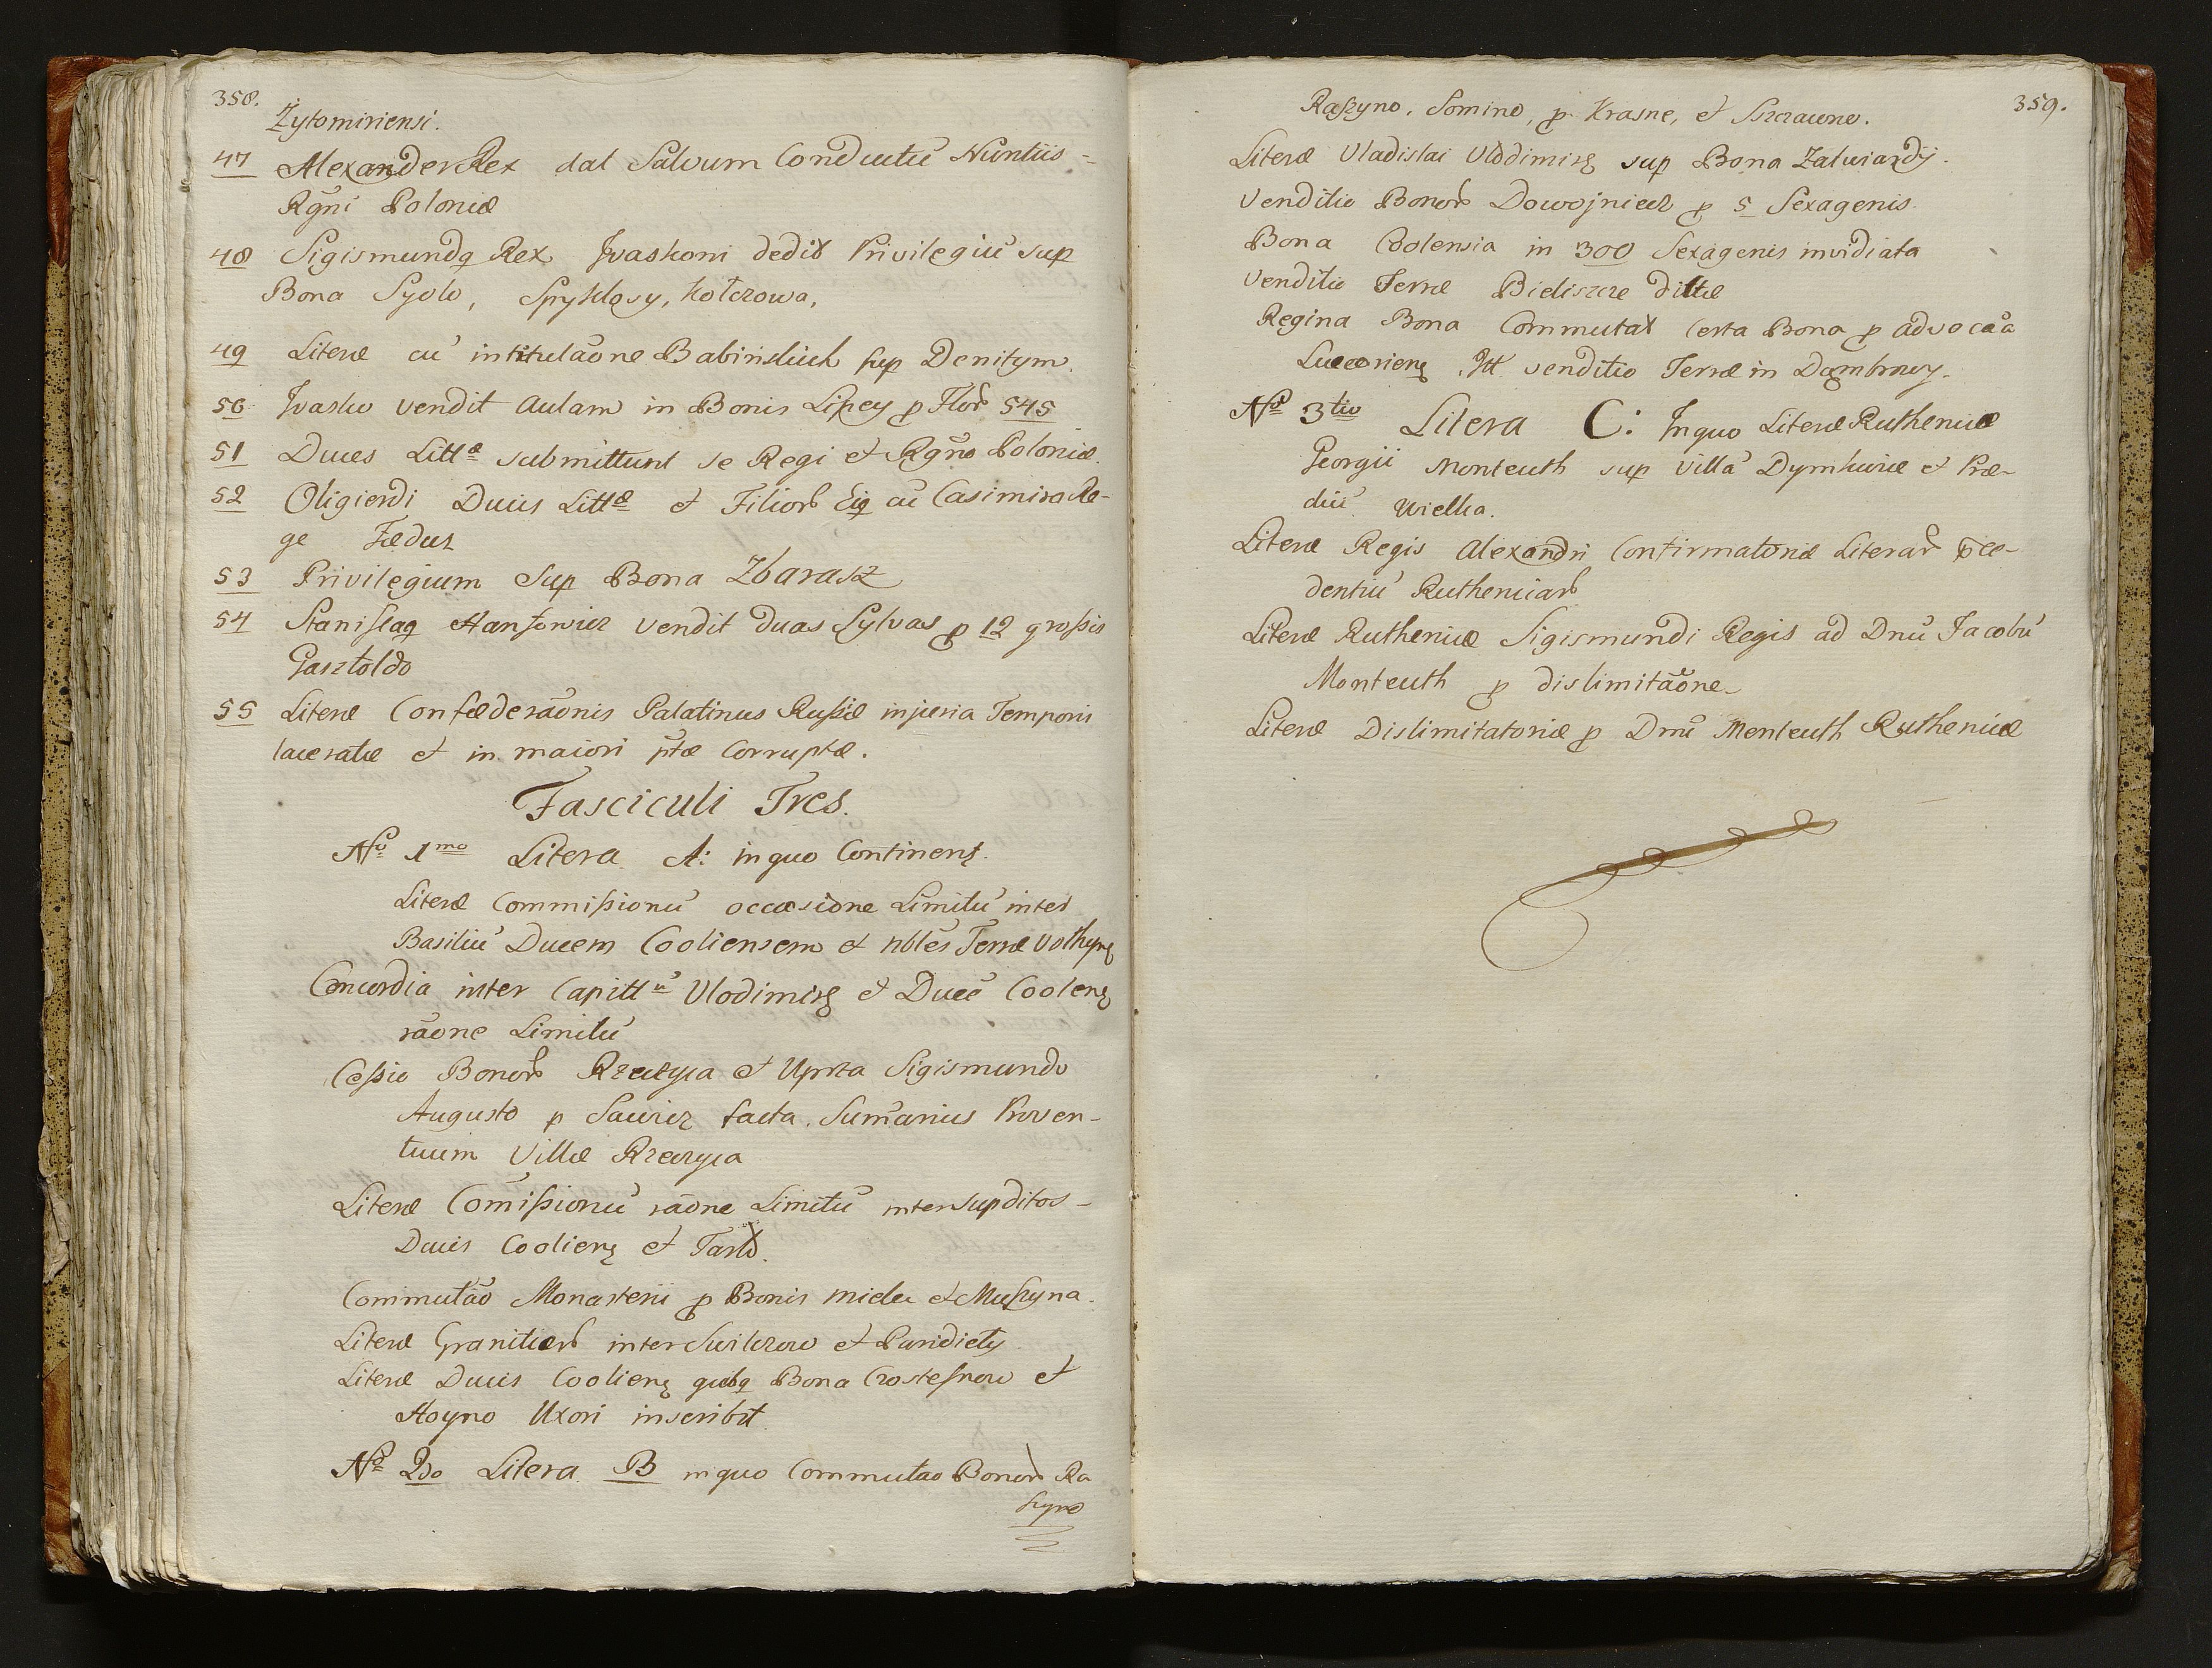 358.
Żytomiriensi.
47 Alexander Rex dat Salvum Conductũ Nuntiis =
Rgñi Poloniæ
48 Sigismundq Rex Jvaskoni dedit Privilegiũ sup
Bona Syolo, Spyklosy, Kolczowa,
49 Literæ cũ intitulaõne Babinskich sup Denitym.
50 Jvasko vendit Aulam in Bonis Lipey p Flor 545
51 Duces Littæ submittunt se Regi et Rgño Poloniæ.
52 Oligierdi Ducis Littæ et Filior Eiq cũ Casimiro Re-
ge Fædus
53 Privilegium Sup Bona Zbarasz
54 Stanislaq Hansowicz vendit duas Sylvas p 12 grossis
Gasztoldo
55 Literæ Confæderaõnis Palatinus Russiæ injuria Temporis
laceratæ et in maiori pte Corruptæ.
Fasciculi Tres.
Nro 1mo Litera A: in quo Continenƺ.
Literæ Commissionũ occasione Limitũ inter
Basiliũ Ducem Cooliensem et nbles Terræ Volhynę
Concordia inter Capittũ Vlodimirę et Ducẽ Coolenę
raõne Limitũ
Cessio Bonor Rzeczyca et Uprta Sigismundo
Augusto p Sawicz facta. Sumarius Proven-
tuum Villæ Rzeczyca
Literæ Comissionũ raõne Limitũ inter Supditos -
Ducis Coolienę et Tarlo.
Commutaõ Monasterii p Bonis Mielce et Muszyna.
Literæ Granitier inter Swilczow et Paridiety.
Literæ Ducis Coolienę quibq Bona Crostesnow et
Hoyno Uxori inscribit
Nro 2do Litera B in quo Commutao Bonor Ra
szyno
359.
Raszyno, Somino, p Krasne, et Szczaurne.
Literæ Vladislai Vlodimirę sup Bona Zalwiazdij.
Venditio Bonor Dowojniecz p 5 Sexagenis.
Bona Coolensia in 300 Sexagenis invidiata
Venditio Terræ Bieliszcze dittæ
Regina Bona Commutat Certa Bona p advocaã
Luceorienę Itt venditio Terræ in Dąmbrowy.
Nro 3tio Litera C: In quo Literæ Ruthenicæ
Georgii Monteuth sup Villã Dymkowicæ et Præ-
diũ Wielka.
Literæ Regis Alexandri Confirmatoriæ Literar p̃ce-
dentiũ Ruthenicar
Literæ Rutheniæ Sigismundi Regis ad Dnũ Jacobũ
Monteuth p dislimitaõne
Literæ Dislimitatoriæ p Dnũ Monteuth Rutheniæ